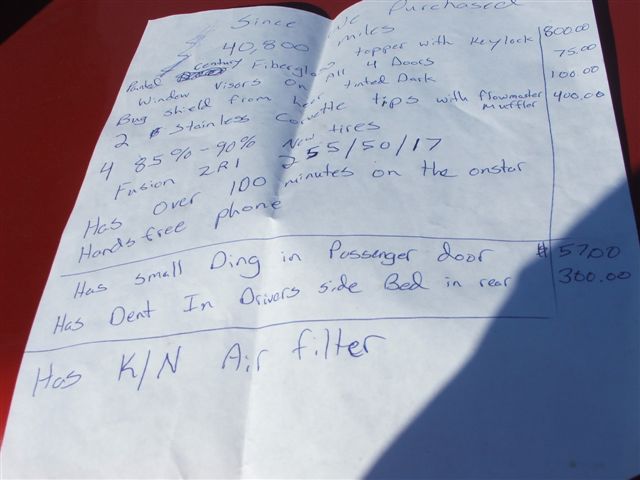 Since Purchased
40,800 miles
Painted Century Fiberglass topper with Keylock 800.00
Window Visors on All 4 Doors 75.00
Bug shield from tinted Dark 100.00
2 Stainless Corvette tips with flowmaster Muffler 400.00
4 85%-90% New tires
Fusion ZRI 255/50/17
Has over 100 minutes on the onstar
Hands free phone
Has small Ding in Passenger door $ 5700
Has Dent In Drivers side Bed in rear 300.00
Has K/N Air filter